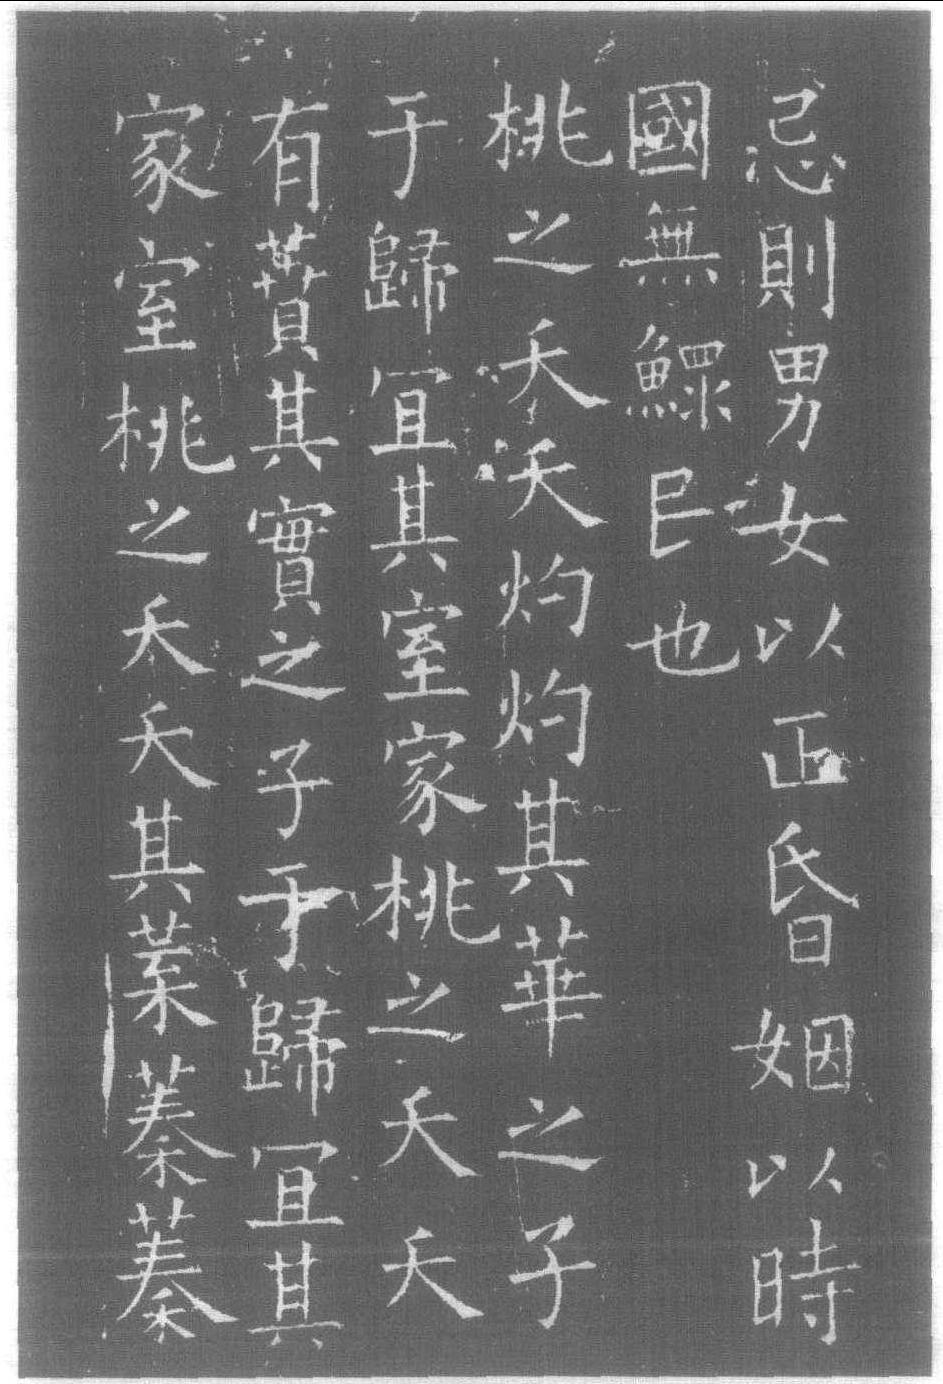 忌則男女以正昏姻以時
國無鰥民也
桃之夭夭灼灼其華之子
于歸冝其室家桃之夭夭
有蕡其實之子于歸冝其
家室桃之夭夭其葉蓁蓁